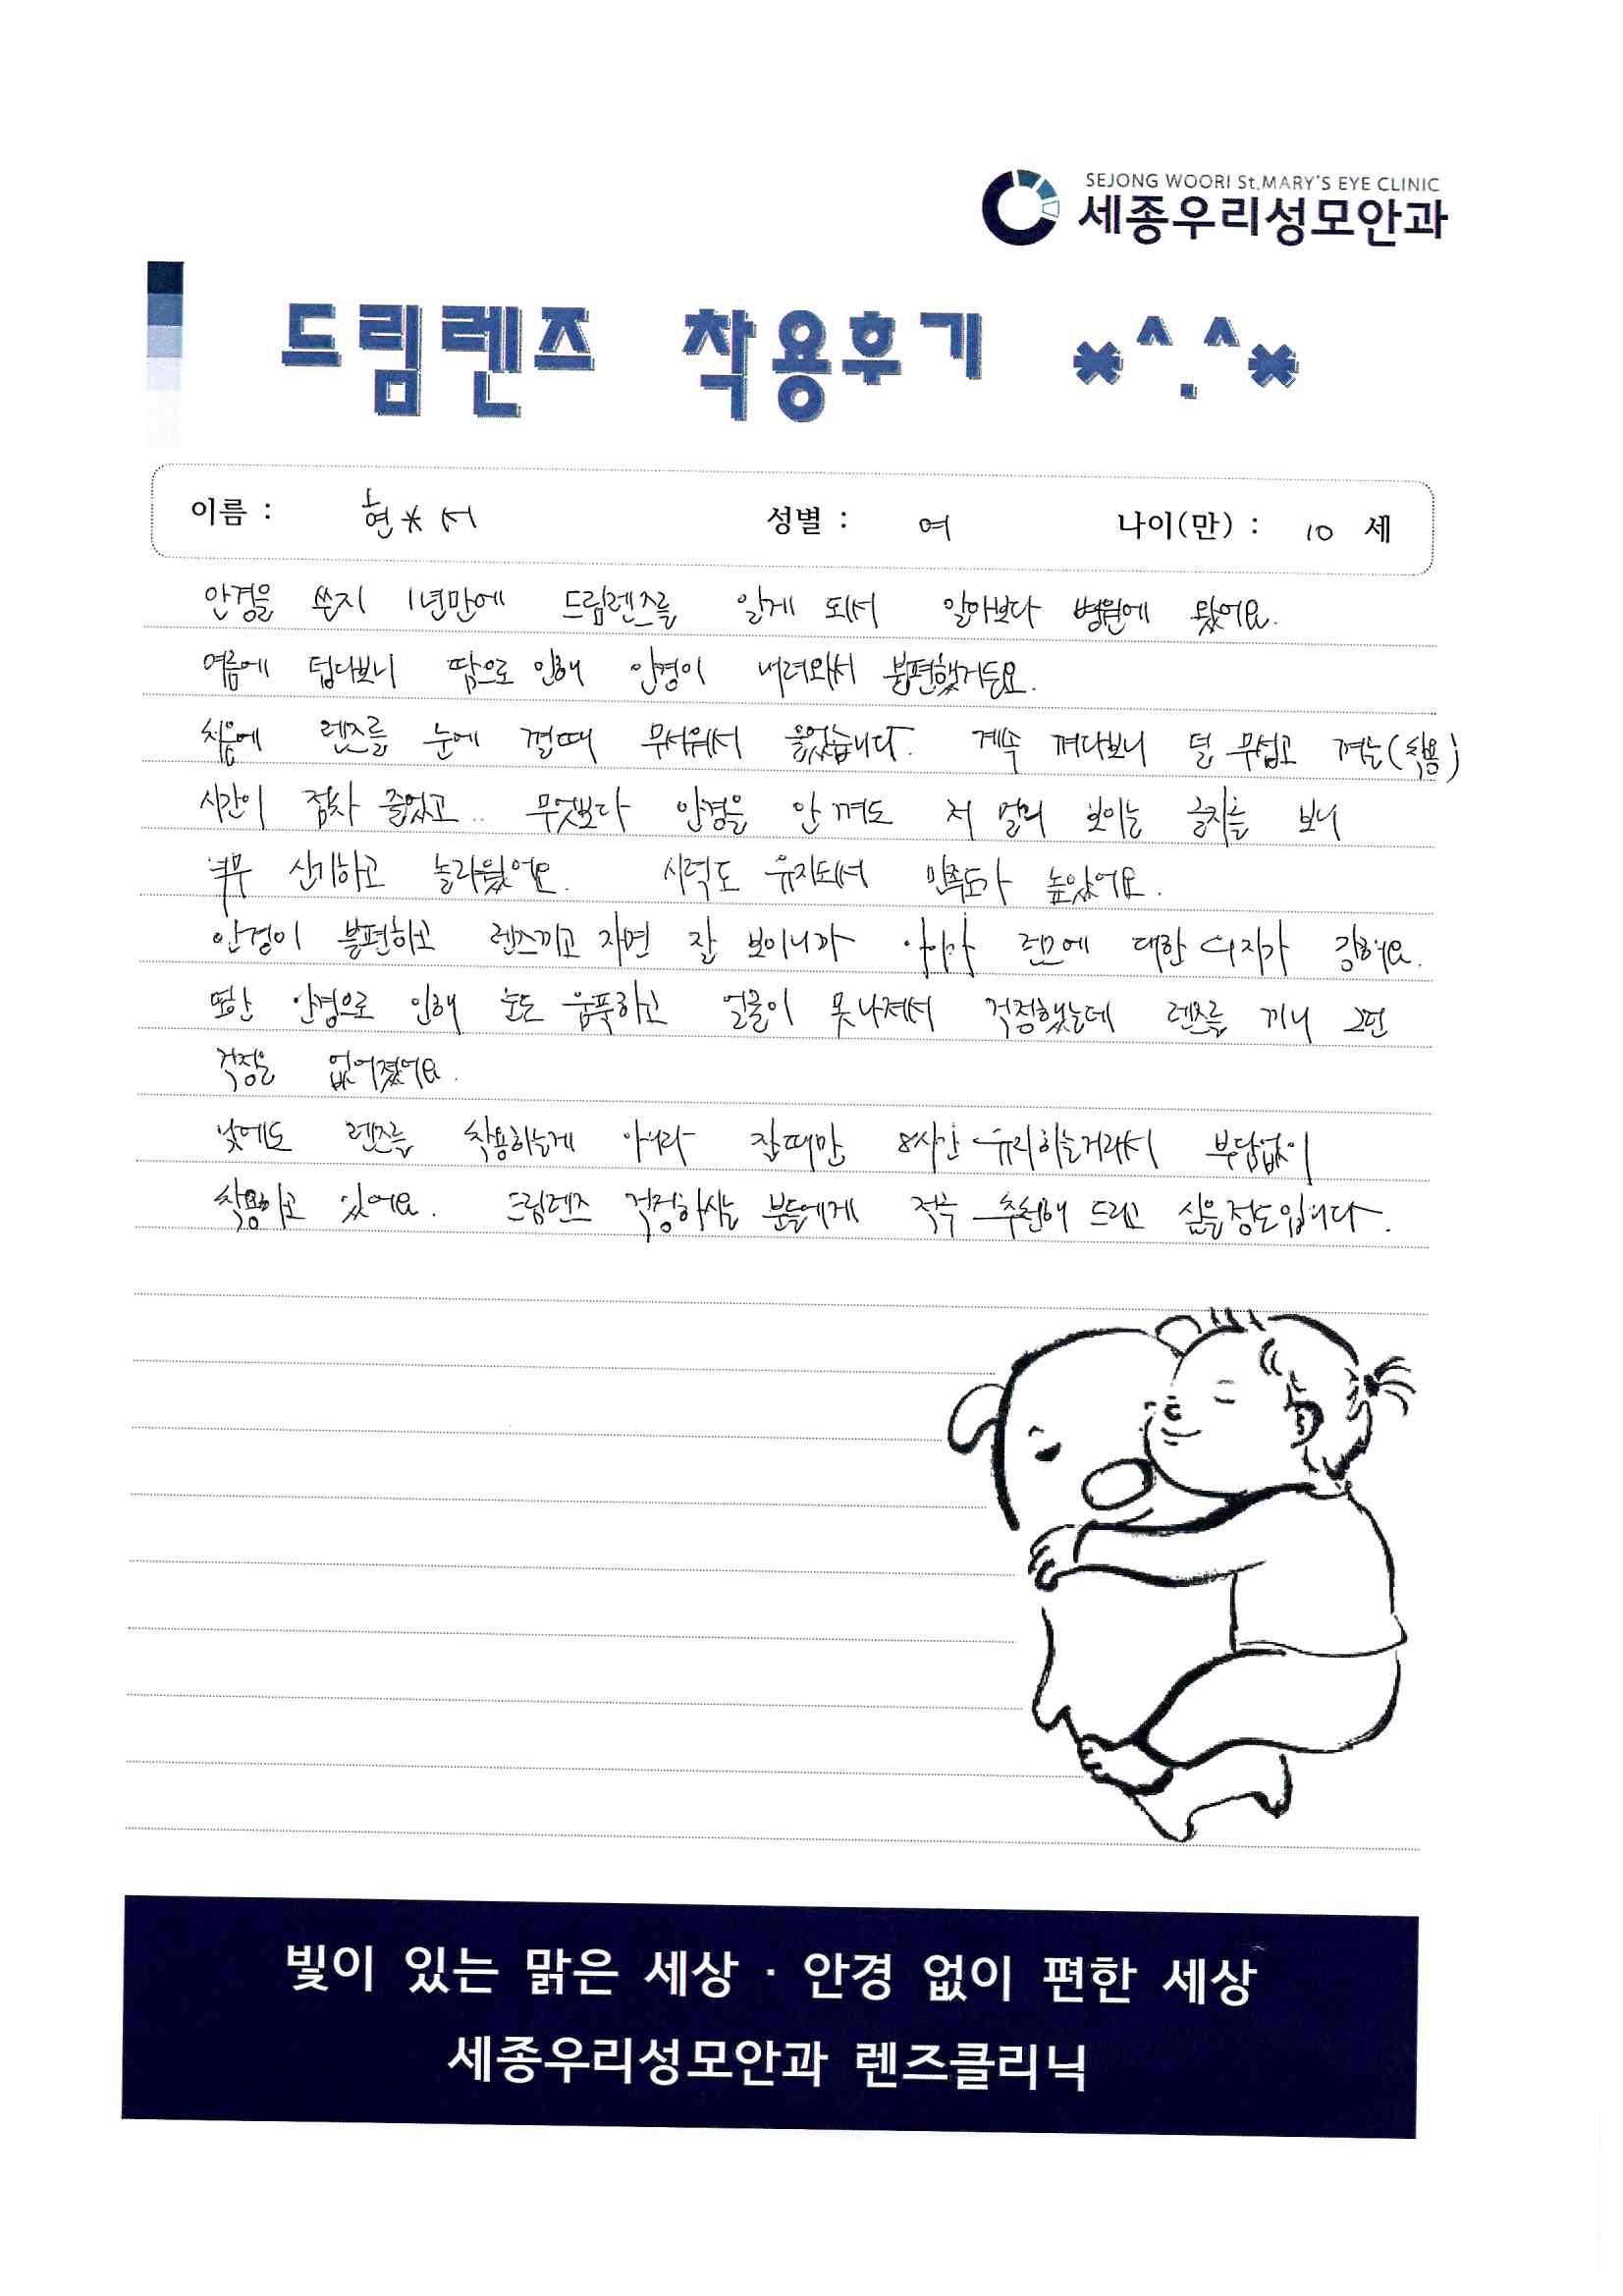 SEJONG WOORI St.MARY'S EYE CLINIC
세종우리성모안과
드림렌즈 착용후기 *^.^*
이름 : 현*서 성별 : 여 나이(만) : 10 세
안경을 쓴지 1년만에 드림렌즈를 알게 되서 알아보다 병원에 왔어요.
여름에 덥다보니 땀으로 인해 안경이 내려와서 불편했거든요.
처음에 렌즈를 눈에 낄때 무서워서 울었습니다. 계속 껴다보니 덜 무섭고 껴는(착용)
시간이 점차 줄었고.. 무엇보다 안경을 안 껴도 저 멀리 보이는 글자를 보니
너무 신기하고 놀라웠어요. 시력도 유지되서 만족도가 높았어요.
안경이 불편하고 렌즈끼고 자면 잘 보이니까 아이가 렌즈에 대한 의지가 강해요.
또한 안경으로 인해 눈도 움푹하고 얼굴이 못나져서 걱정했는데 렌즈를 끼니 그런
걱정은 없어졌어요.
낮에도 렌즈를 착용하는게 아니라 잘때만 8시간 유지하는거라서 부담없이
착용하고 있어요. 드림렌즈 걱정하시는 분들에게 적극 추천해 드리고 싶을정도입니다.
빛이 있는 맑은 세상 · 안경 없이 편한 세상
세종우리성모안과 렌즈클리닉